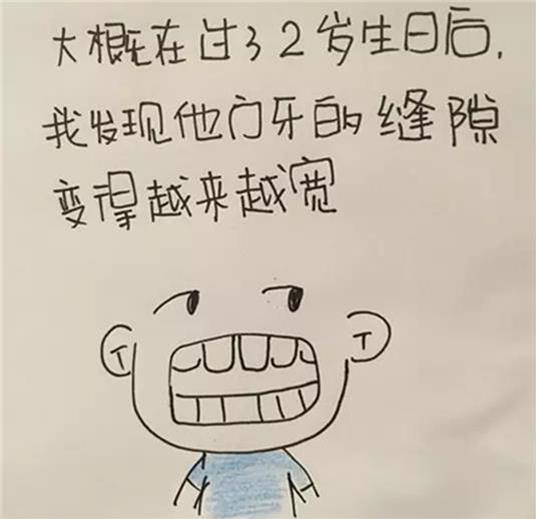 大概在过32岁生日后,
我发现他门牙的缝隙
变得越来越宽